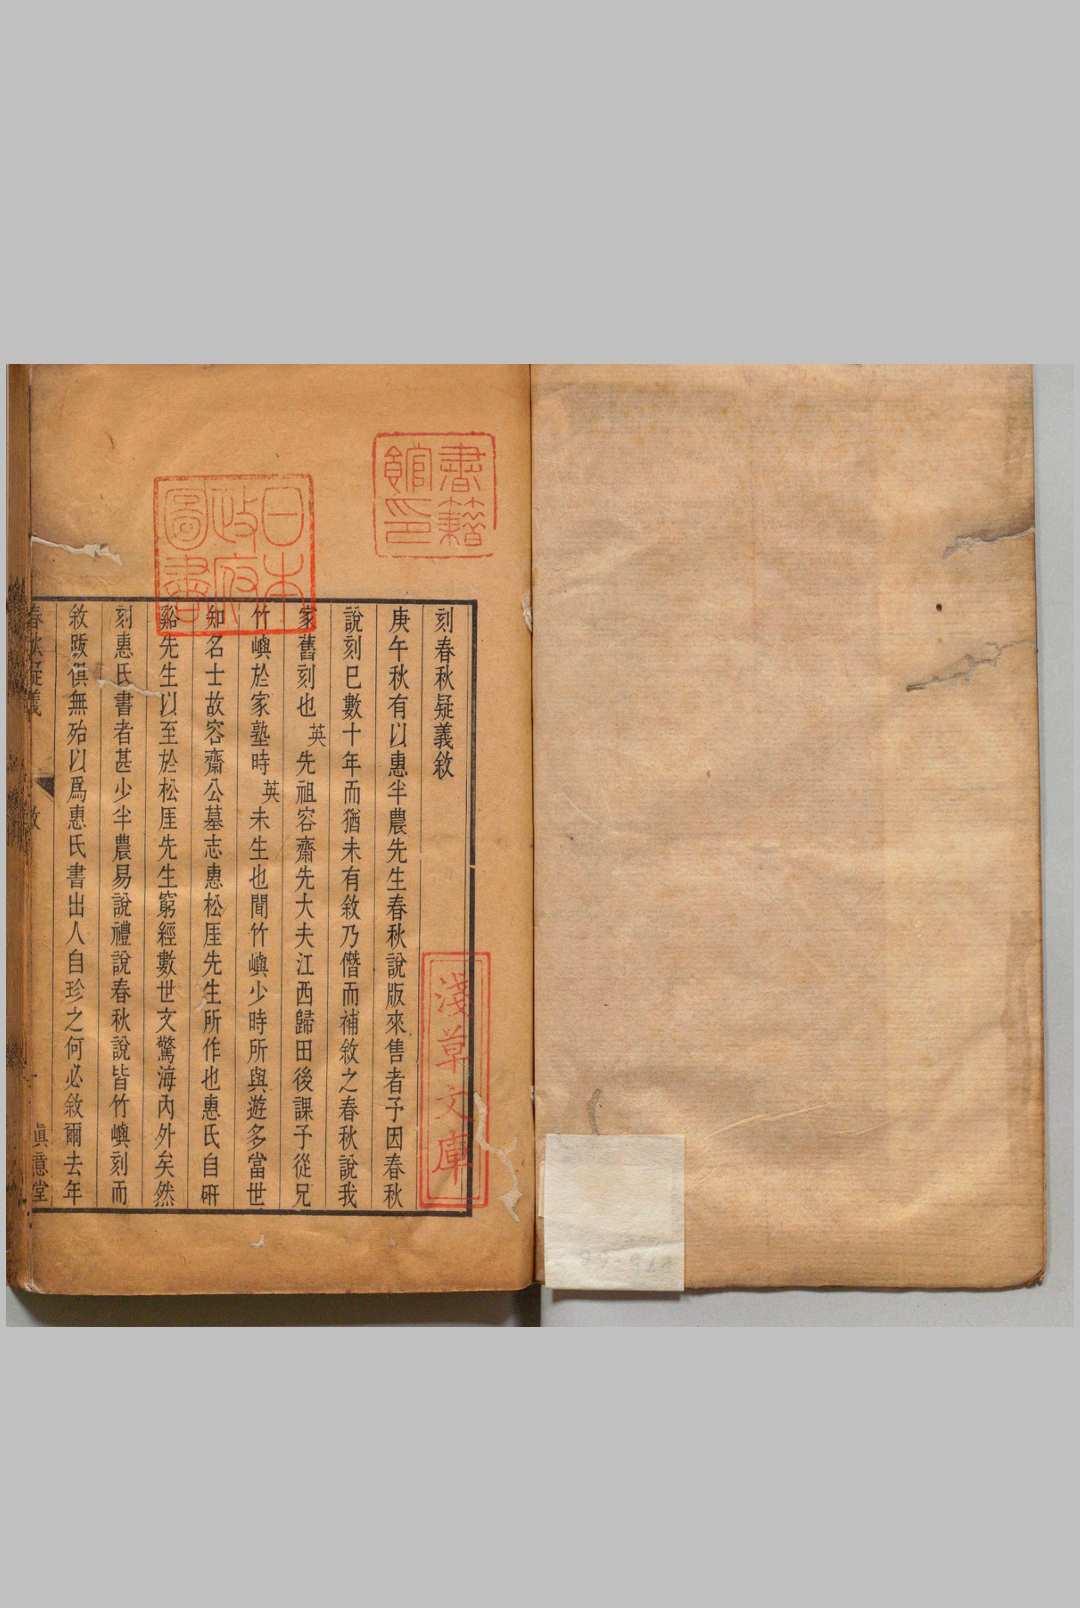 刻春秋疑義敘
庚午秋有以惠半農先生春秋說版來售者予因春秋
說刻已數十年而猶未有敘乃僭而補敘之春秋說我
家舊刻也英先祖容齋先大夫江西歸田後課子從兄
竹嶼於家塾時英未生也聞竹嶼少時所與遊多當世
知名士故容齋公墓志惠松厓先生所作也惠氏自研
谿先生以至於松厓先生窮經數世文驚海內外矣然
刻惠氏書者甚少半農易說禮說春秋說皆竹嶼刻而
敘䟦俱無殆以爲惠氏書出人自珍之何必敘爾去年
春秋疑義
敘
眞意堂
書籍館印
日本政府圖書
淺草文庫